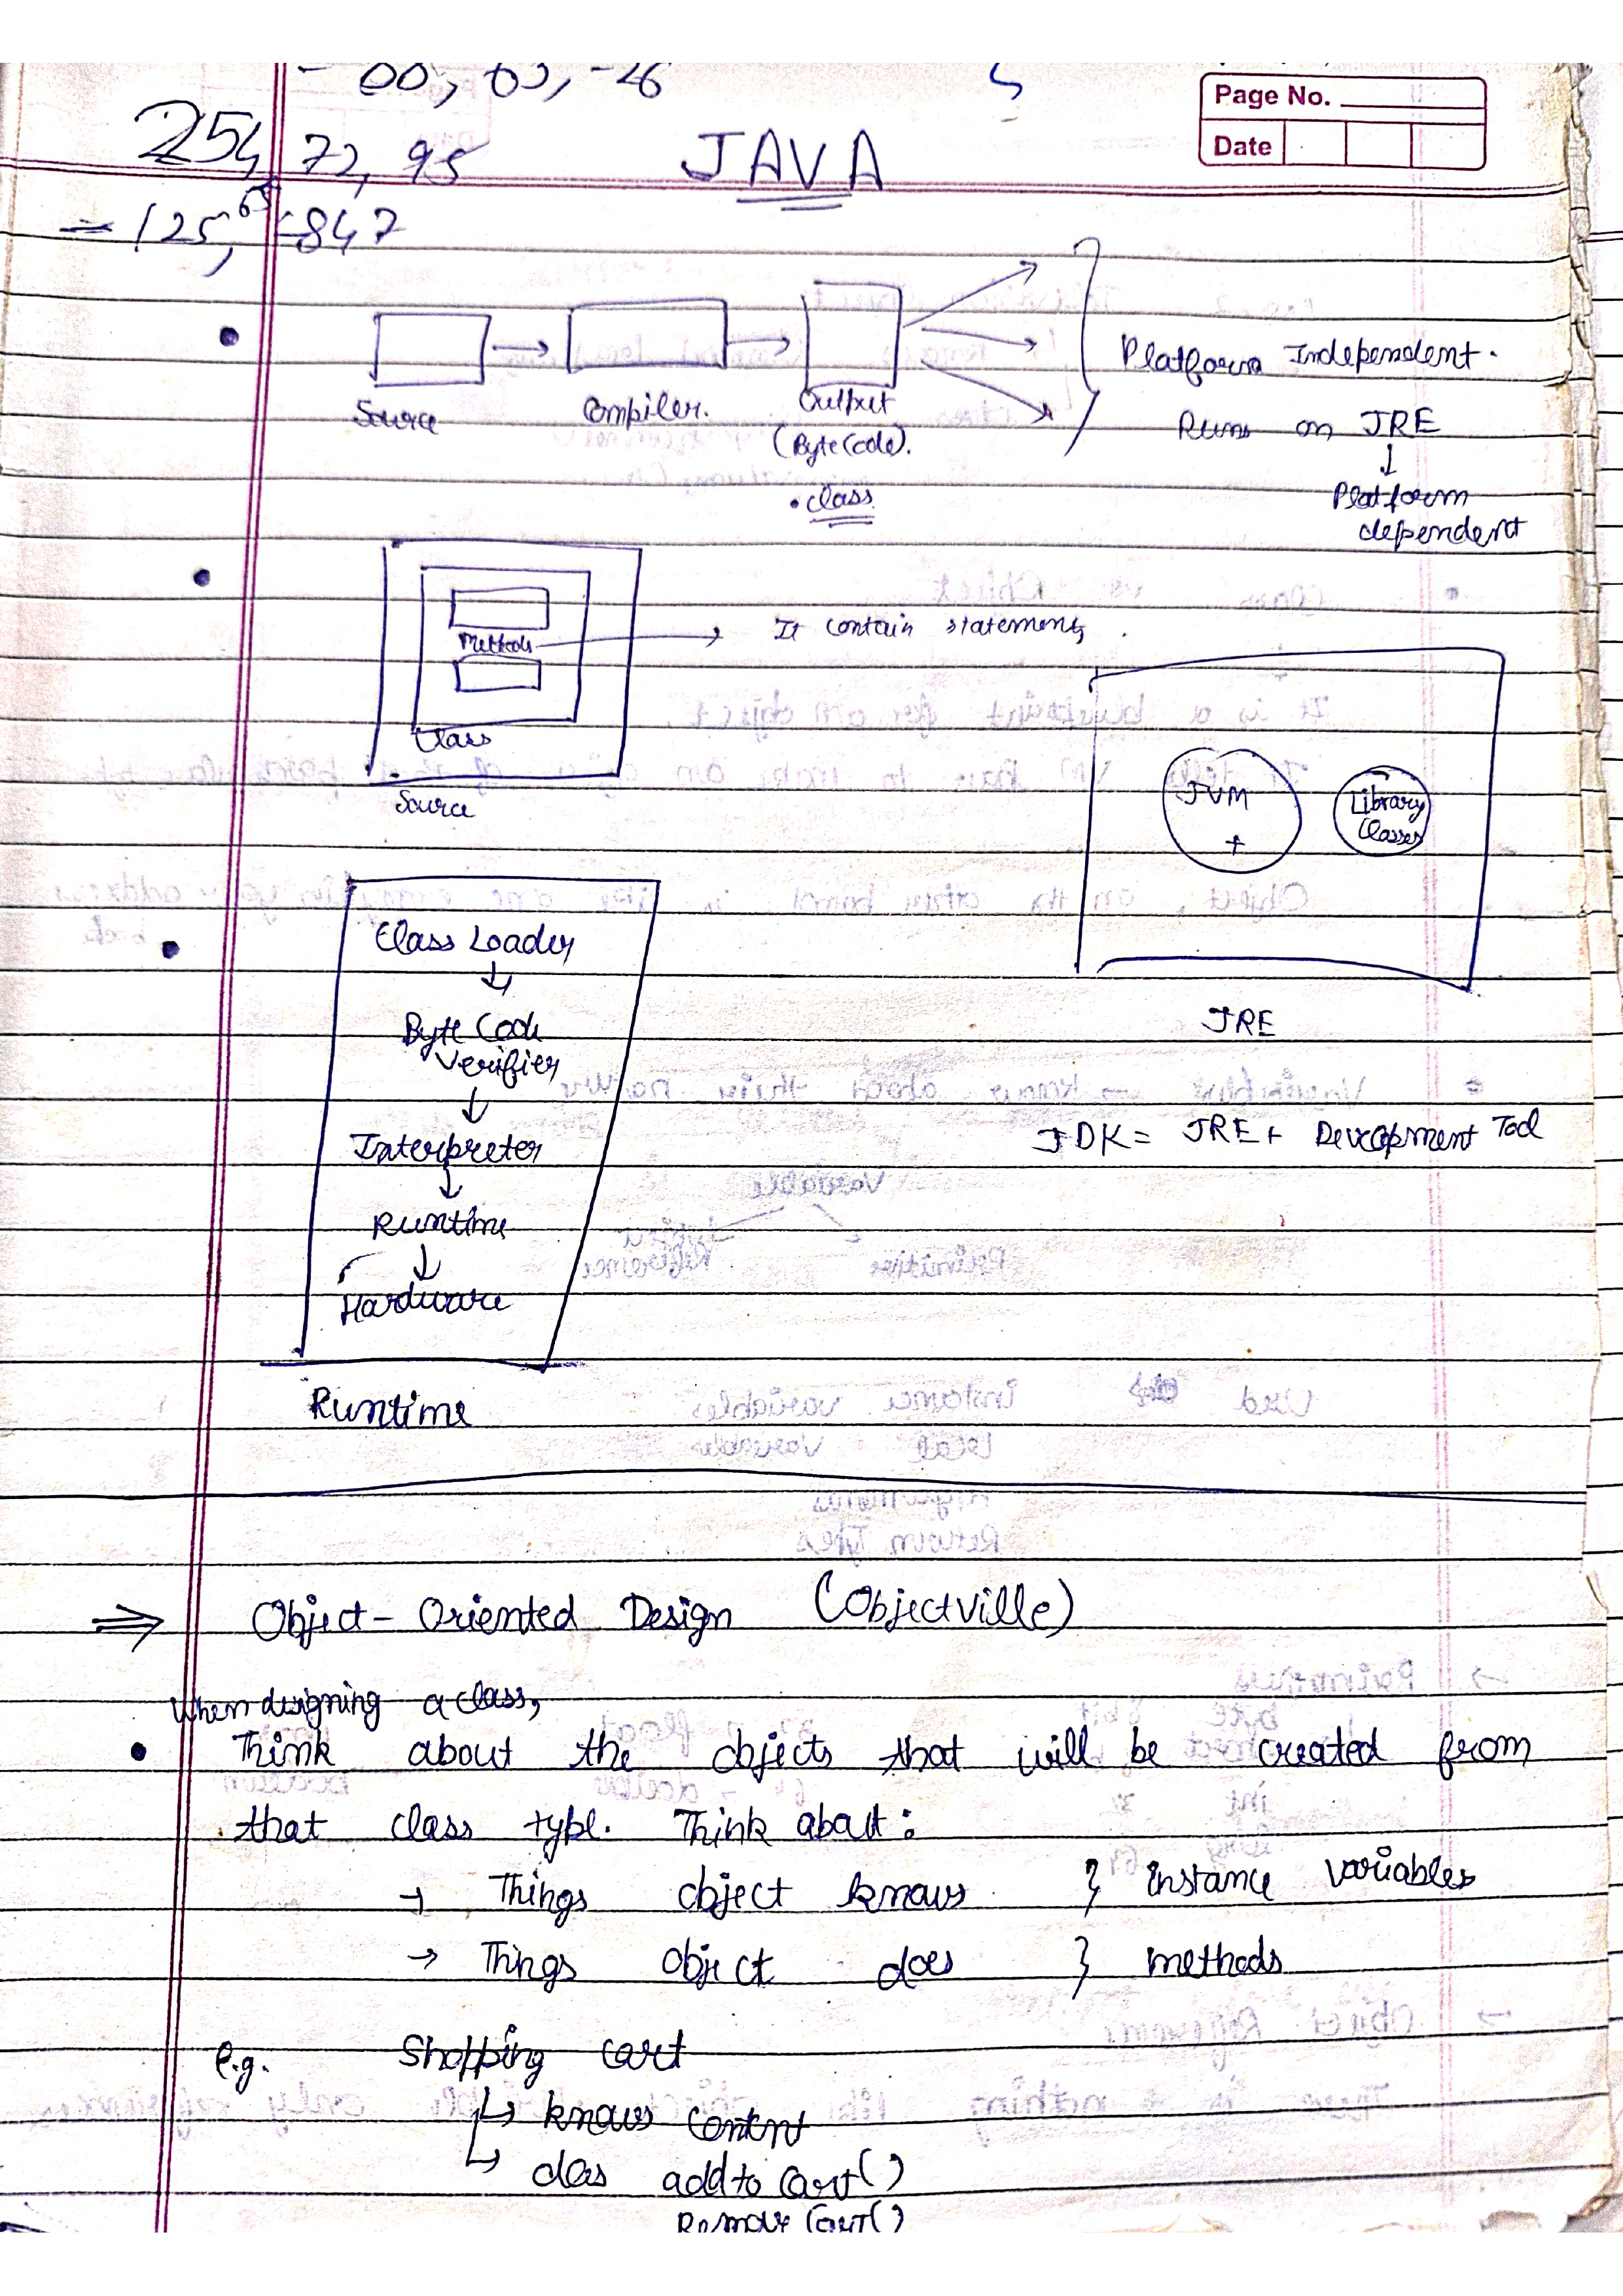 Page No.
Date
254, 72, 95
JAVA
= 125, 65, -847
Source → Compiler. → Output
(Byte Code).
.class
Platform Independent.
Runs on JRE
↓
Platform
dependent
Methods → It contain statements.
Class
Source
JVM
+
Library
Classes
JRE
JDK = JRE + Development Tool
Class Loader
↓
Byte Code
Verifier
↓
Interpreter
↓
Runtime
↓
Hardware
Runtime
⇒ Object - Oriented Design (Objectville)
When designing a class,
• Think about the objects that will be created from
that class type. Think about:
→ Things object knows } instance variables
→ Things object does } methods
e.g. Shopping cart
↳ knows content
↳ does add to cart()
Remove Cart()